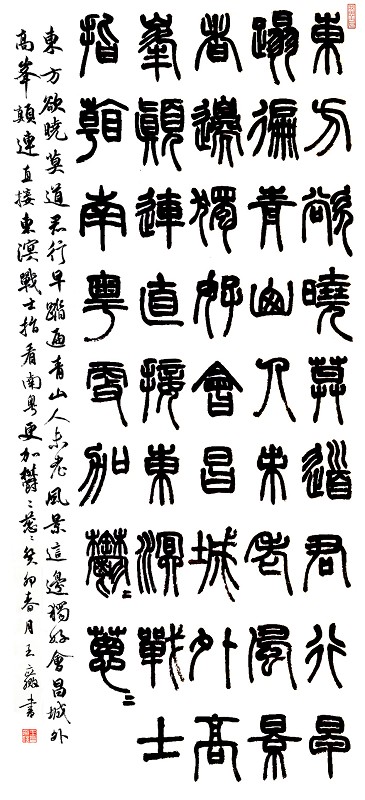 東方欲曉莫道君行早
踏遍青山人未老風景
者邊獨好會昌城外高
峯顛連直接東溟戰士
指看南粵更加鬱〻蔥〻
東方欲曉莫道君行早踏遍青山人未老風景這邊獨好會昌城外
高峯顛連直接東溟戰士指看南粵更加鬱〻蔥〻癸卯春月王書